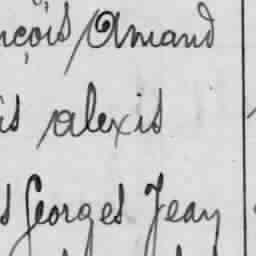 nçois Amand
is alexis
s Georges Jean